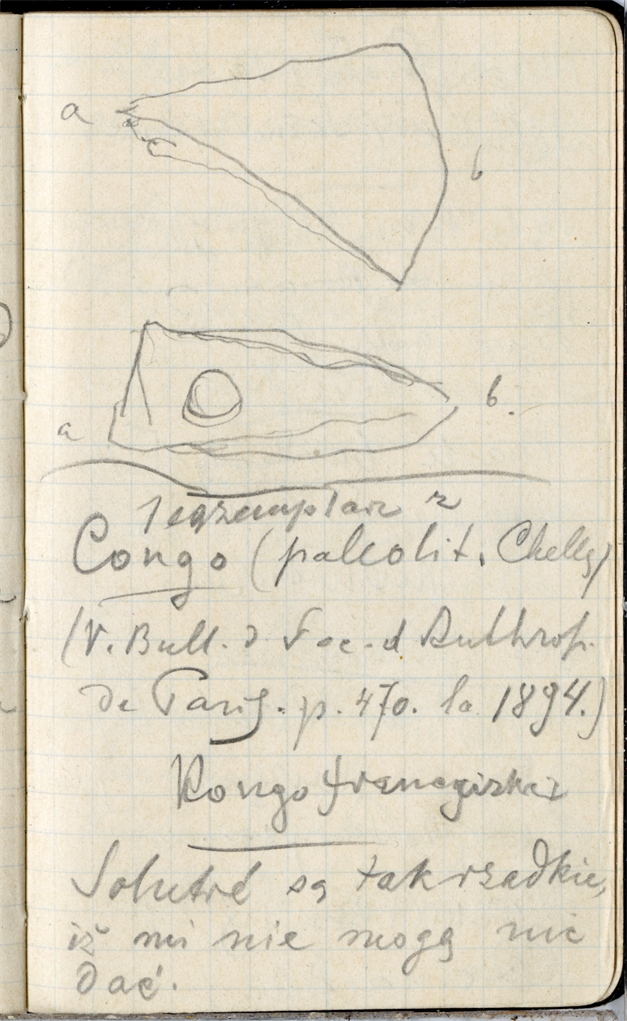 a
b
b.
a
1 egzemplarz z
Congo (paleolit. Chelles)
(V. Bull. d Soc. d Anthrop.
de Paris. p. 470. la 1894.)
Kongo francuzkie
Solutré są tak rzadkie,
iż mi nie mogą nic
dać.